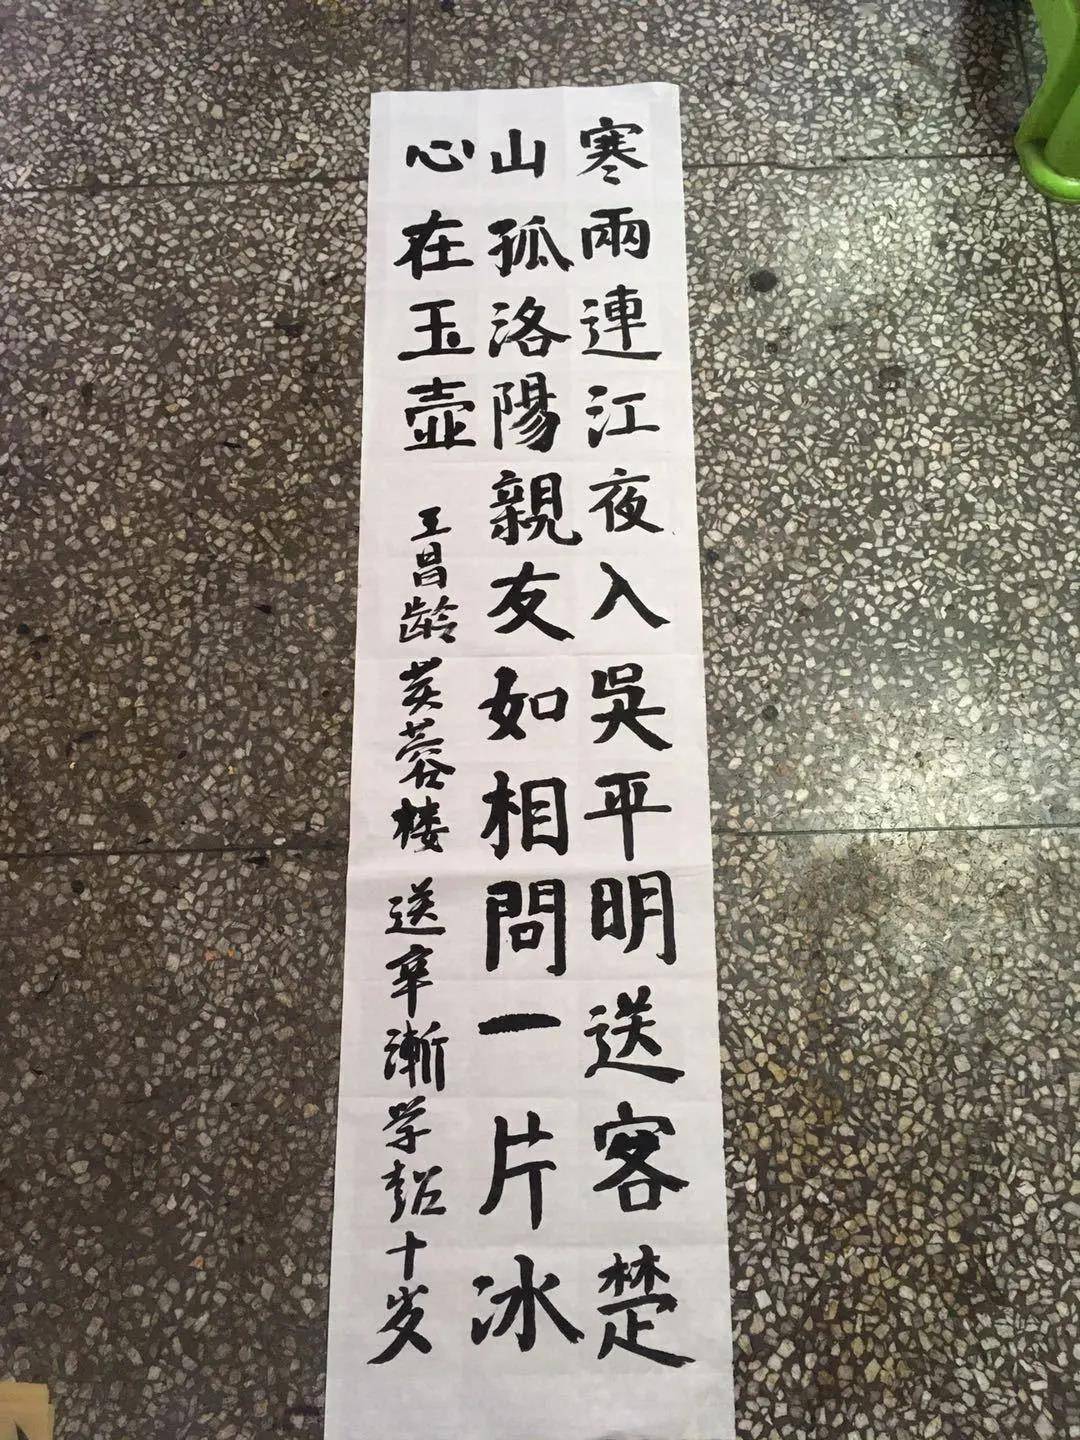 寒兩連江夜入吳平明送客楚
山孤洛陽親友如相問一片冰
心在玉壺 王昌龄芙蓉楼 送辛漸学超十岁